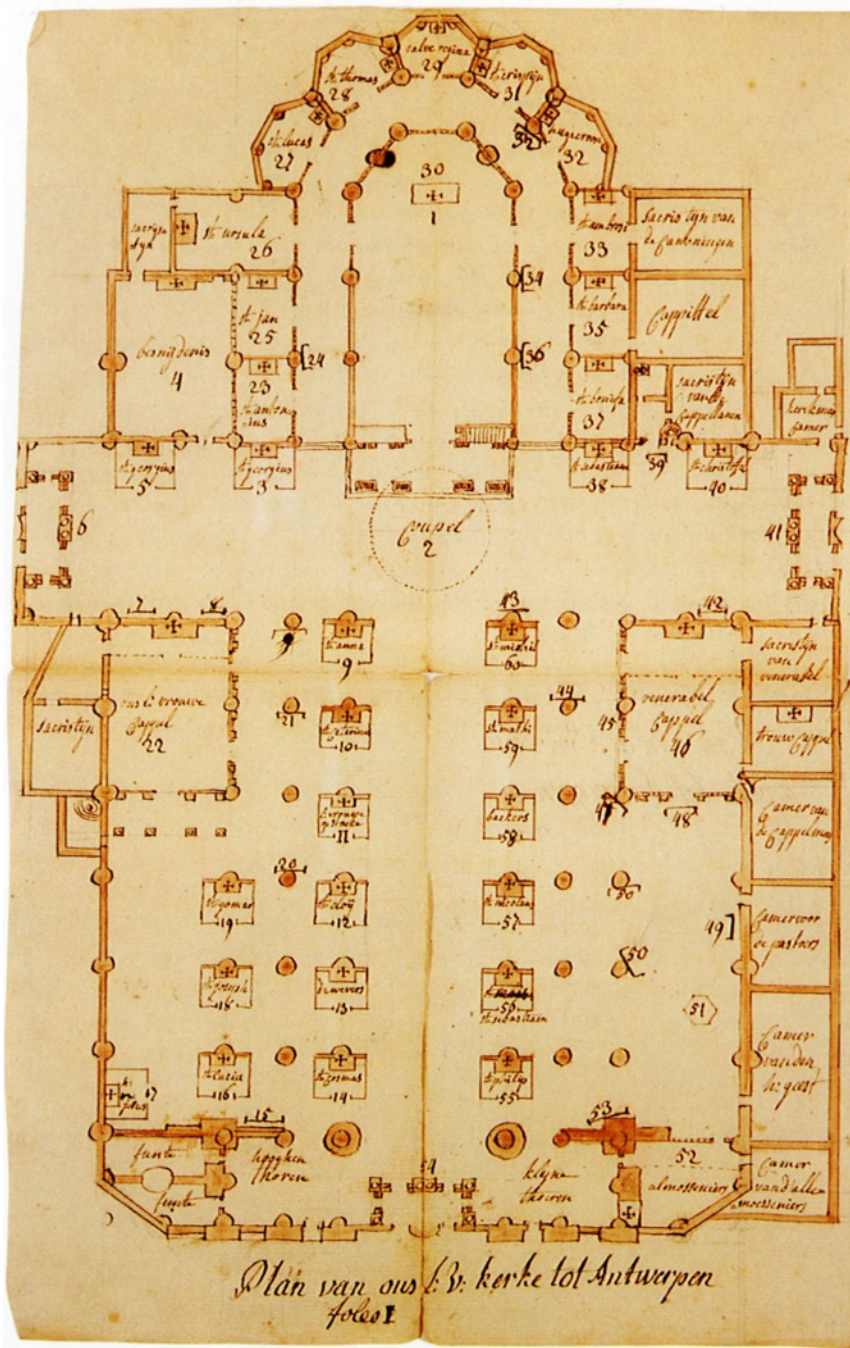 salve regina
29
st thomas
28
31
st lucas
27
32
32
30
1
st ursula
26
st ambrosi
33
sacristyn van
de Canoningen
34
st jan
25
st barbara
35
Cappittel
besnijdenis
4
24
36
23
st antoni
us
37
sacristijn
vande
Cappellanen
kerckmrs
Camer
st georgius
5
st georgius
3
st sebastiaen
38
39
st christoffel
40
6
Coupel
2
41
7
8
43
42
st anna
9
st michil
60
sacristijn
van
venerabel
sacristijn
ons l: vrouwe
Cappel
22
21
10
st mathi
59
44
45
venerabel
Cappel
46
trouw Cappel
11
backers
58
47
48
Camer van
de Cappelmrs
20
st gomar
19
st eloij
12
st nicolaus
57
50
49
Camer voor
de pastoors
st joseph
18
de wevers
13
56
st sebastiaen
50
51
Camer
van den
h: geest
17
st lucia
16
st cosmas
14
st philips
55
15
53
funte
hooghen
thoren
funte
54
klyne
thoren
52
almosseniers
Camer
vand'alle
moesseniers
Plan van ons l: v: kerke tot Antwerpen
foleo 1